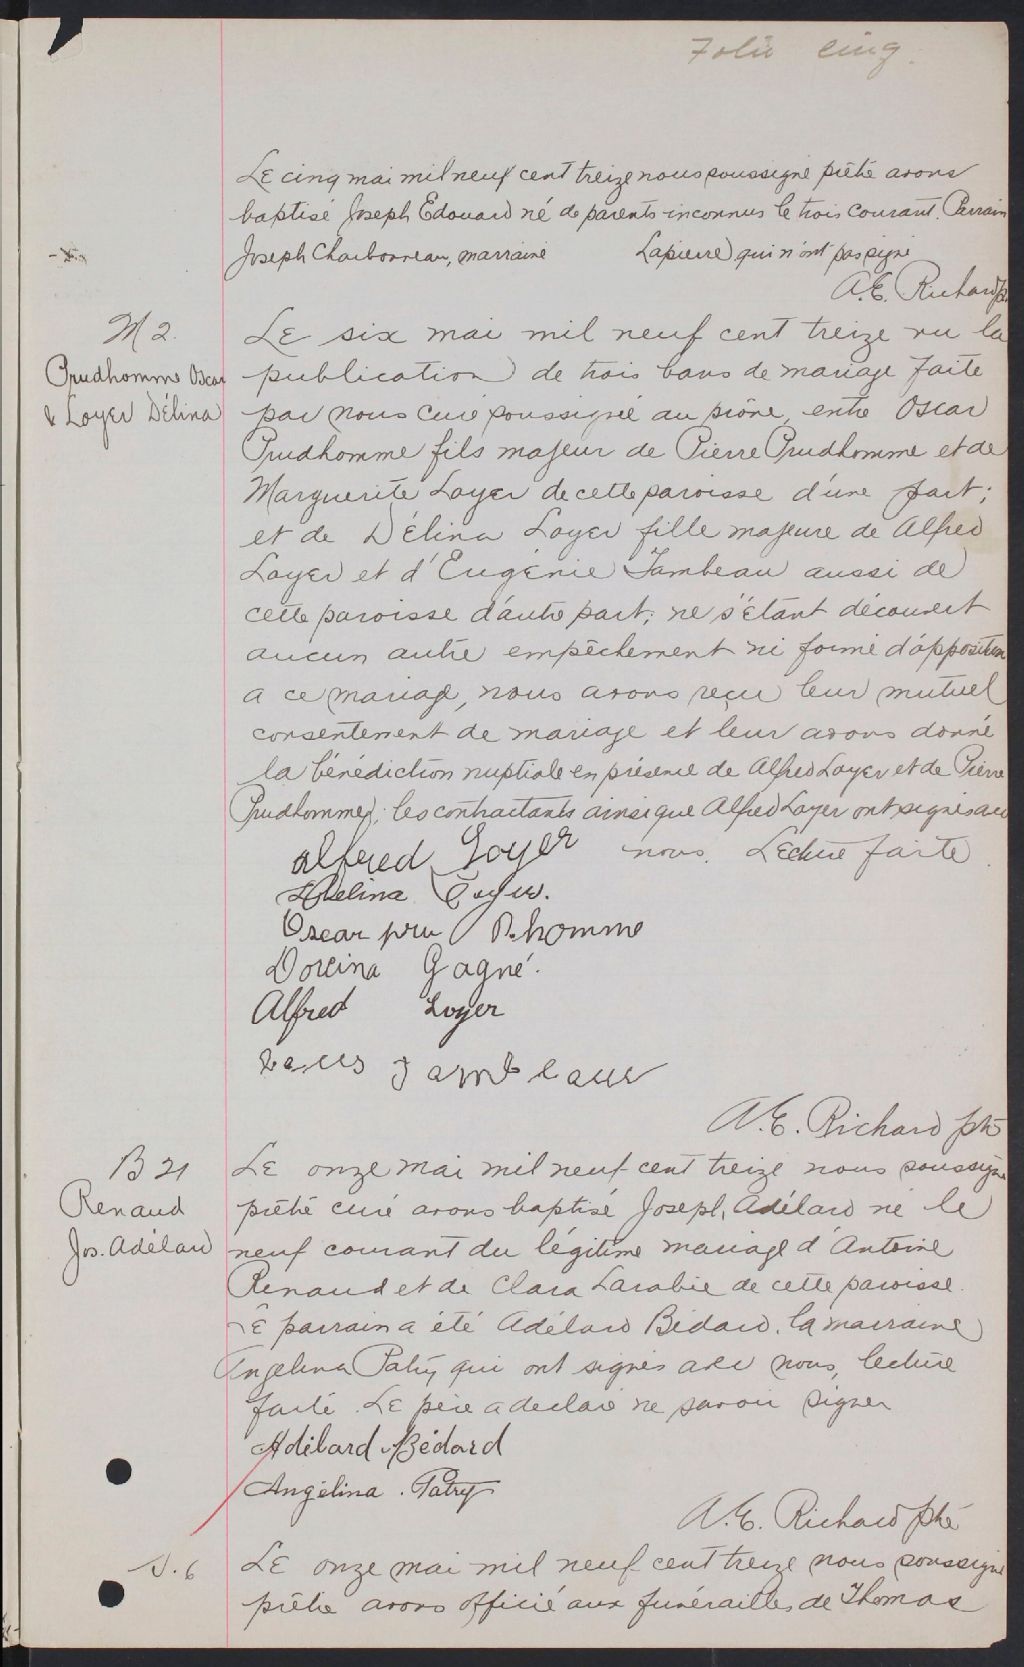 Folio cinq.
Le cinq mai mil neuf cent treize nous soussigné prêtre avons
baptisé Joseph Edouard né de parents inconnus le trois courant. Parrain
Joseph Charbonneau, marraine Lapierre qui n'ont pas signé
A. E. Richard p.
M 2.
Prudhomme Oscar
& Loyer Délina
Le six mai mil neuf cent treize vu la
publication de trois bans de mariage faite
par nous curé soussigné au prône, entre Oscar
Prudhomme fils majeur de Pierre Prudhomme et de
Marguerite Loyer de cette paroisse d'une part;
et de Délina Loyer fille majeure de Alfred
Loyer et d'Eugénie Jambeau aussi de
cette paroisse d'autre part; ne s'étant découvert
aucun autre empêchement ni formé d'opposition
a ce mariage, nous avons reçu leur mutuel
consentement de mariage et leur avons donné
la bénédiction nuptiale en présence de Alfred Loyer et de Pierre
Prudhomme; les contractants ainsi que Alfred Loyer ont signés avec
nous. Lecture faite.
alfred Loyer
Délina Loyer.
Oscar pru P.homme
Dorcina Gagné.
Alfred Loyer
Jambeau
A. E. Richard ptr
B 21
Renaud
Jos. Adélard
Le onze mai mil neuf cent treize nous soussigné
prêtre curé avons baptisé Joseph, Adélard né le
neuf courant du légitime mariage d'Antoine
Renaud et de Clara Larabie de cette paroisse.
Le parrain a été Adélard Bédard, la marraine
Angelina Patry qui ont signés avec nous, lecture
faite. Le père a declaré ne savoir signer
Adélard Bédard
Angélina. Patry
A. E. Richard ptre
S. 6
Le onze mai mil neuf cent treize nous soussigné
prêtre avons officié aux funérailles de Thomas